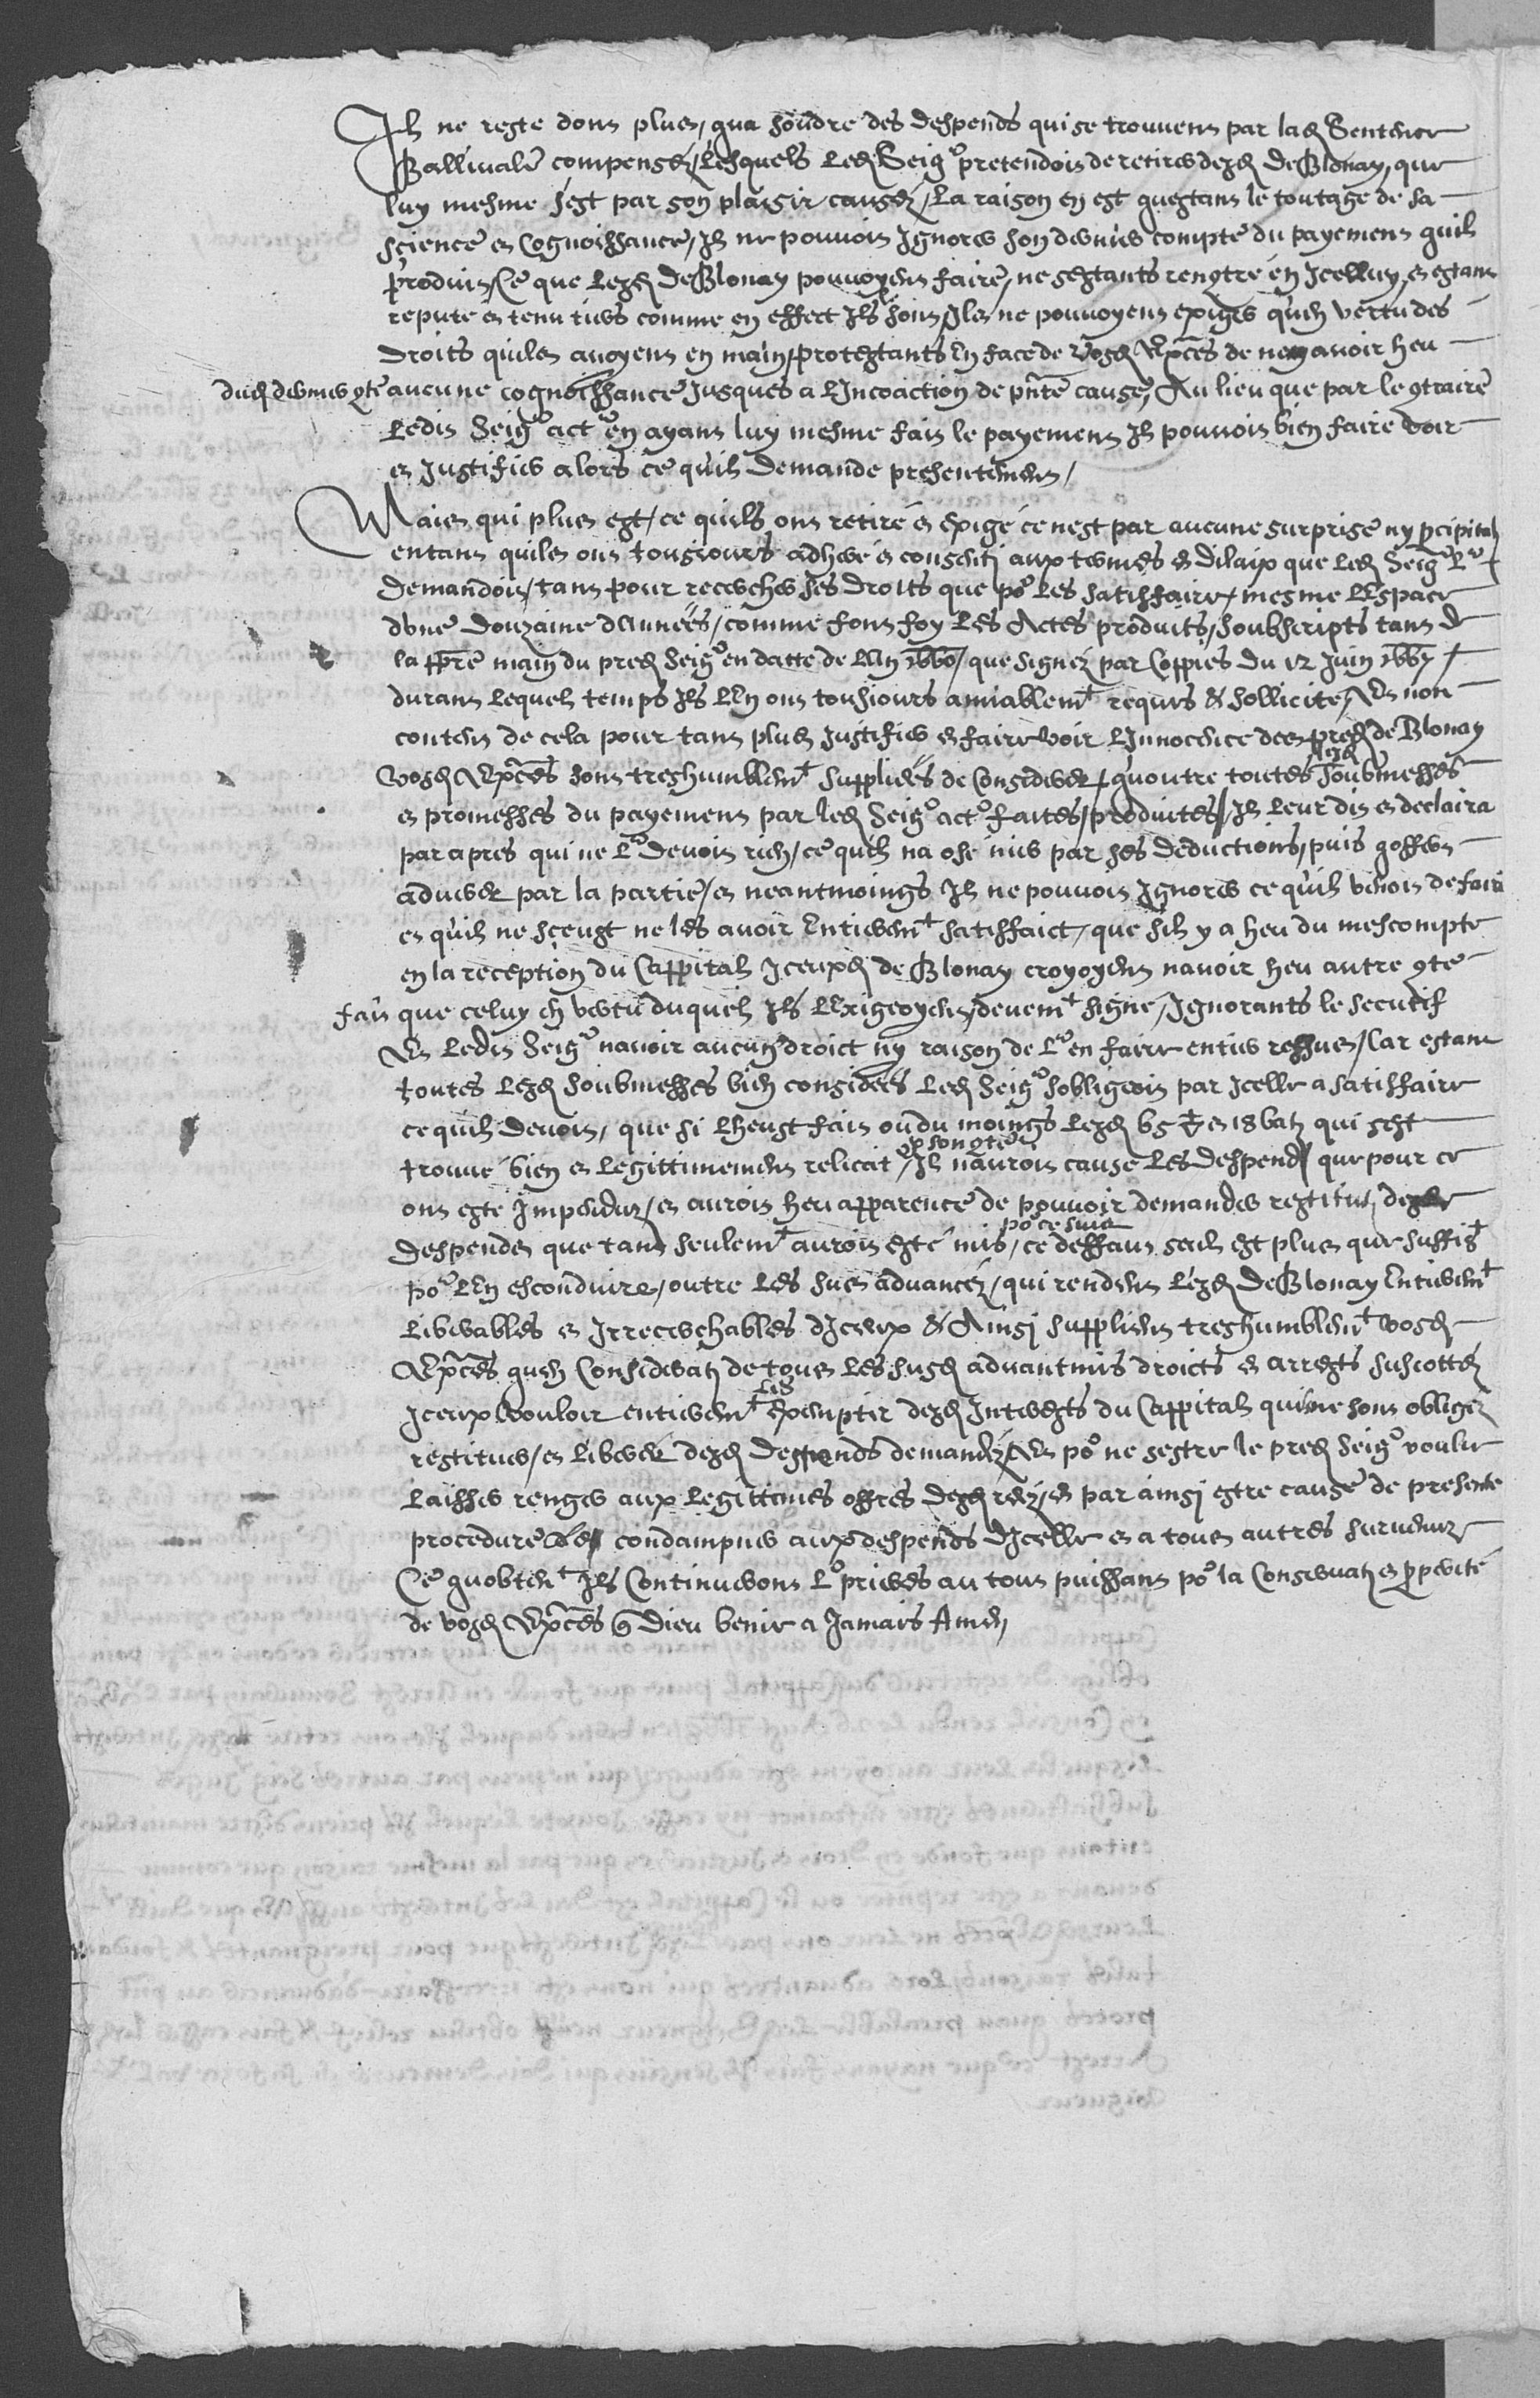 Il ne reste dont plus, qua soudre des despends qui se trouvent par lad Sentence
Ballivale compensés, Lesquels Led Seigr pretendoit de retirer desd De Blonay, que
luy mesme sest par son plaisir causez, La raison en est questant le toutage de sa
science et Cognoissance, Il ne pouvoit Ignorer son dernier compte du payement quil
produit, Ce que Lesd De Blonay pouvoyent faire, ne sestants renctré en Icelluy, et estant
repute et tenu tiers comme en effect Ils sont, Ils ne pouvoyent exiger quen vertu des
droits quils avoyent en main, protestants En face de Vosd Exces de nen avoir heu
dud dernier cte aucune cognoissance Jusques a Lincoaction de pnte cause, Au lieu que par le ctraire
Ledit Seigr actr en ayant luy mesme fait le payement Il pouvoit bien faire voir
et Justifier alors ce quil demande presentement,
Mais qui plus est, ce quils ont retiré et exigé ce nest par aucune surprise ny pcipitatn
entant quils ont tousjours adheré et consenti aux termes et dilaix que Led Seigr Lr
demandoit, tant pour rechercher ses droits que por les satisfaire, mesme LEspace
dune douzaine dAnnées, comme font foy Les Actes produits, soubscripts tant de
la ppre main du pred Seigr en datte de LEn 1660, que signez par Coppies du 12 Juin 1667
durant Lequel temps Ils LEn ont tousiours amiablemt requis & sollicité, Et non
content de cela pour tant plus Justifier et faire voir LInnocence des pred de Blonay
Vosd Exces sont treshumblemt suppliées de Considerer, quoutre toutes lesd soubmesses
et promesses du payement par led Seigr actr faites, produites, Il Leur dit et declaira
par apres qui ne Lr devoit rien, ce quil na ose nier par ses deductions, puis soffert
averer par la partie, et neantmoings Il ne pouvoit Ignorer ce quil venoit de faire
et quil ne sceust ne les avoir Entieremt satisfaict, que sil y a heu du mescompte
en la reception du Cappital Iceuxd de Blonay croyoyent navoir heu autre cte
fait que celuy en vertu duquel Ils LExigeoyent, devemt signé, Ignorants le secutif
Et Ledit Seigr navoir aucun droict ny raison de Lr en faire entier reffus, Car estant
toutes Lesd soubmesses bien considerés Led Seigr sobligeoit par Icelle a satisfaire
ce quil devoit, que si Lheust fait ou du moings Lesd 65 et 18 batz qui sest
trouvé bien et Legittimement relicat, p son cte Il nauroit causé Les despends que pour ce
ont esté Impendus, et auroit heu apparence de pouvoir demander restitutn desd
despends que tant seulemt auroit esté mis, por ce suiet ce deffaut seul est plus que suffist
por LEn esconduire, outre Les sus advancez, qui rendent Lesd De Blonay Entieremt
Liberables et Irrecerchables dIceux & Ainsi supplient treshumblemt Vosd
Exces quen Consideratn de tous Les susd advantmis droicts et arrests suscottez
Iceux Vouloir entieremt Les exempter desd Interests du Cappital quine sont obligez
restituer, et Liberer desd despends demandez, Et por ne sestre le pred Seigr voulu
Laisser renger aux Legittimes offres desd reez, et par ainsi estre cause de presente
procedure, condampner aux despends dIcelle et a tous autres survenuz
Ce quobtent Ils Continueront Lr prieres au tout puissant por la Conservatn et prperité
de vosd Exces q Dieu benie a Jamais Amen,